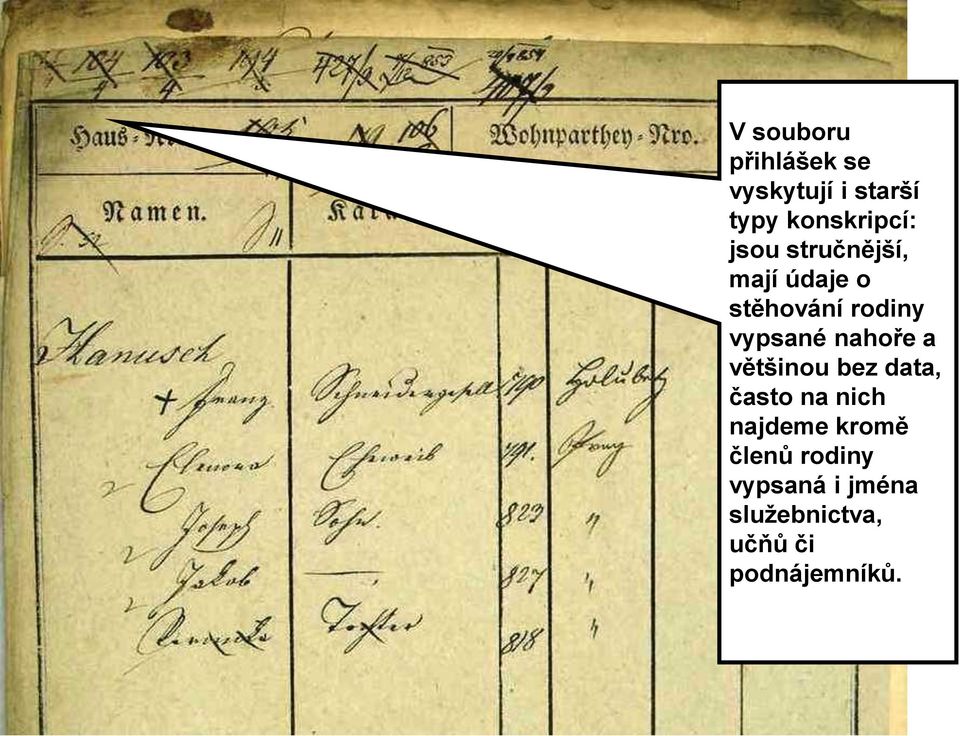 104 103 114 427/9 853 20/9 854
4 4 407/9
Haus-Nro. 106 Wohnparthey-Nro.
Namen. Kara
52
Hanusch
+ Franz Schneidergesell 790 Holubetz
Elenora Eheweib 791. Prag
Joseph Sohn. 823 "
Jakob — 827 "
Tochter 818 "
V souboru
přihlášek se
vyskytují i starší
typy konskripcí:
jsou stručnější,
mají údaje o
stěhování rodiny
vypsané nahoře a
většinou bez data,
často na nich
najdeme kromě
členů rodiny
vypsaná i jména
služebnictva,
učňů či
podnájemníků.